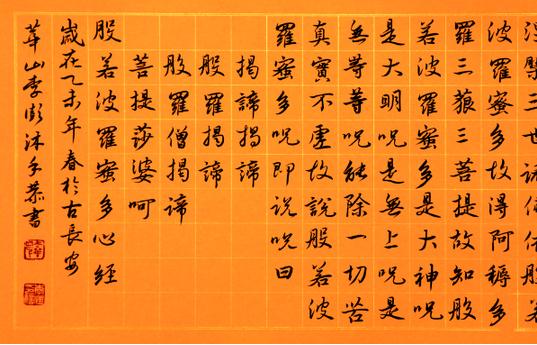 涅槃三世諸佛依般若
波羅蜜多故得阿耨多
羅三藐三菩提故知般
若波羅蜜多是大神呪
是大明呪是無上呪是
無等等呪能除一切苦
真實不虛故說般若波
羅蜜多呪即說呪曰
揭諦揭諦
般羅揭諦
般羅僧揭諦
菩提莎婆呵
般若波羅蜜多心經
歲在乙未年春於古長安
華山李沐手恭書